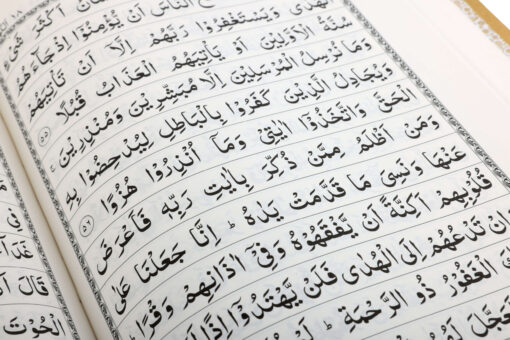 اَكْثَرَ شَيْءٍ
النَّاسَ اَنْ يُّؤْمِنُوْٓا اِذْ جَآءَهُمُ
الْهُدٰى وَيَسْتَغْفِرُوْا رَبَّهُمْ اِلَّآ اَنْ تَاْتِيَهُمْ
سُنَّةُ الْاَوَّلِيْنَ اَوْ يَاْتِيَهُمُ الْعَذَابُ قُبُلًا ۝۵۵
وَمَا نُرْسِلُ الْمُرْسَلِيْنَ اِلَّا مُبَشِّرِيْنَ وَمُنْذِرِيْنَ ۚ
وَيُجَادِلُ الَّذِيْنَ كَفَرُوْا بِالْبَاطِلِ لِيُدْحِضُوْا بِهِ
الْحَقَّ وَاتَّخَذُوْٓا اٰيٰتِيْ وَمَآ اُنْذِرُوْا هُزُوًا ۝۵۶
وَمَنْ اَظْلَمُ مِمَّنْ ذُكِّرَ بِاٰيٰتِ رَبِّهٖ فَاَعْرَضَ
عَنْهَا وَنَسِيَ مَا قَدَّمَتْ يَدٰهُ ۭ اِنَّا جَعَلْنَا عَلٰى
قُلُوْبِهِمْ اَكِنَّةً اَنْ يَّفْقَهُوْهُ وَفِيْٓ اٰذَانِهِمْ وَقْرًا ۭ
تَدْعُهُمْ اِلَى الْهُدٰى فَلَنْ يَّهْتَدُوْٓا اِذًا
الْغَفُوْرُ ذُو الرَّحْمَةِ ۭ
لَعَجَّلَ لَهُمُ
قَالَ
الْحُوْتَ